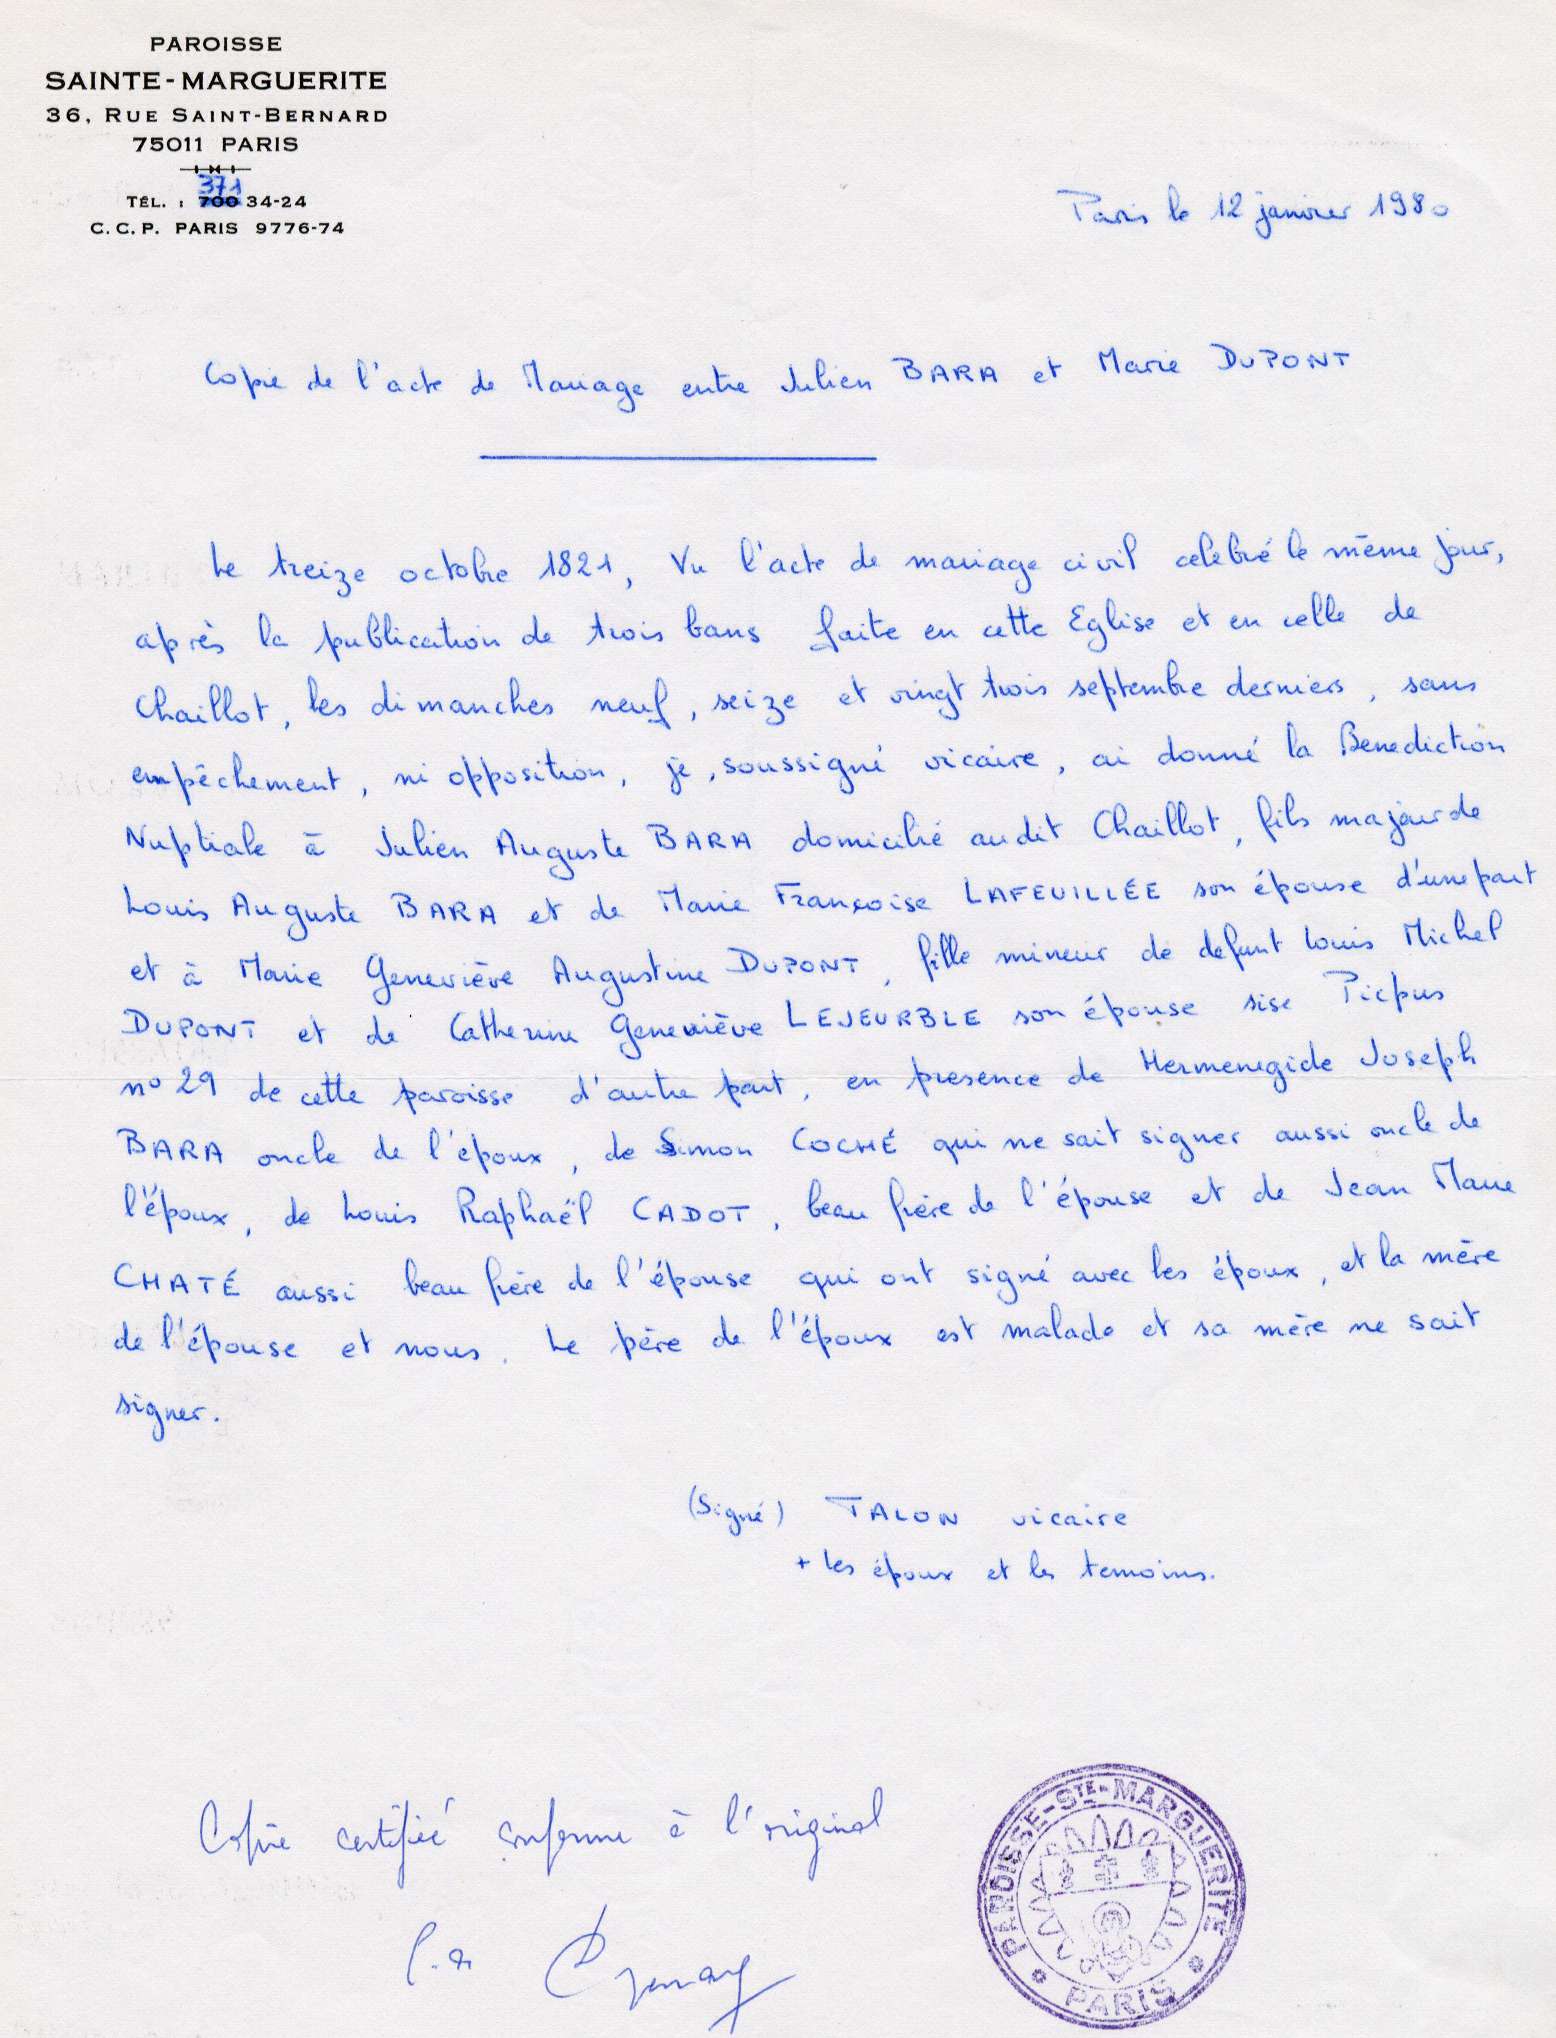 PAROISSE
SAINTE-MARGUERITE
36, RUE SAINT-BERNARD
75011 PARIS
371
TÉL. : 700 34-24
C.C.P. PARIS 9776-74
Paris le 12 janvier 1980
Copie de l'acte de Mariage entre Julien BARA et Marie DUPONT
Le treize octobre 1821, Vu l'acte de mariage civil celebré le même jour,
après la publication de trois bans faite en cette Eglise et en celle de
Chaillot, les dimanches neuf, seize et vingt trois septembre derniers, sans
empêchement, ni opposition, je, soussigné vicaire, ai donné la Benediction
Nuptiale à Julien Auguste BARA domicilié audit Chaillot, fils majeur de
Louis Auguste BARA et de Marie Françoise LAFEUILLÉE son épouse d'une part
et à Marie Geneviève Augustine DUPONT, fille mineur de defunt Louis Michel
DUPONT et de Catherine Geneviève LEJEURBLE son épouse sise Picpus
no 29 de cette paroisse d'autre part, en presence de Hermenegide Joseph
BARA oncle de l'époux, de Simon COCHÉ qui ne sait signer aussi oncle de
l'époux, de Louis Raphaël CADOT, beau frère de l'épouse et de Jean Marie
CHATÉ aussi beau frère de l'épouse qui ont signé avec les époux, et la mère
de l'épouse et nous. Le père de l'époux est malade et sa mère ne sait
signer.
(Signé) TALON vicaire
+ les époux et les temoins.
Copie certifiée conforme à l'original
PAROISSE-STE-MARGUERITE
PARIS